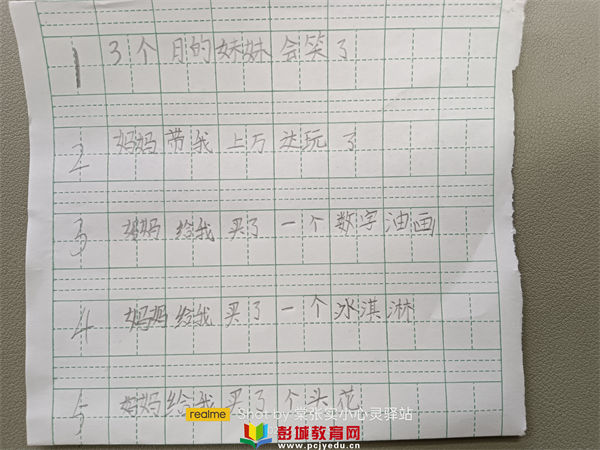 1 3个月的妹妹会笑了
2 妈妈带我上万达玩了
3 妈妈给我买了一个数字油画
4 妈妈给我买了一个冰淇淋
5 妈妈给我买了个头花
realme Shot by 棠张实小心灵驿站
彭城教育网
www.pcjyedu.cn